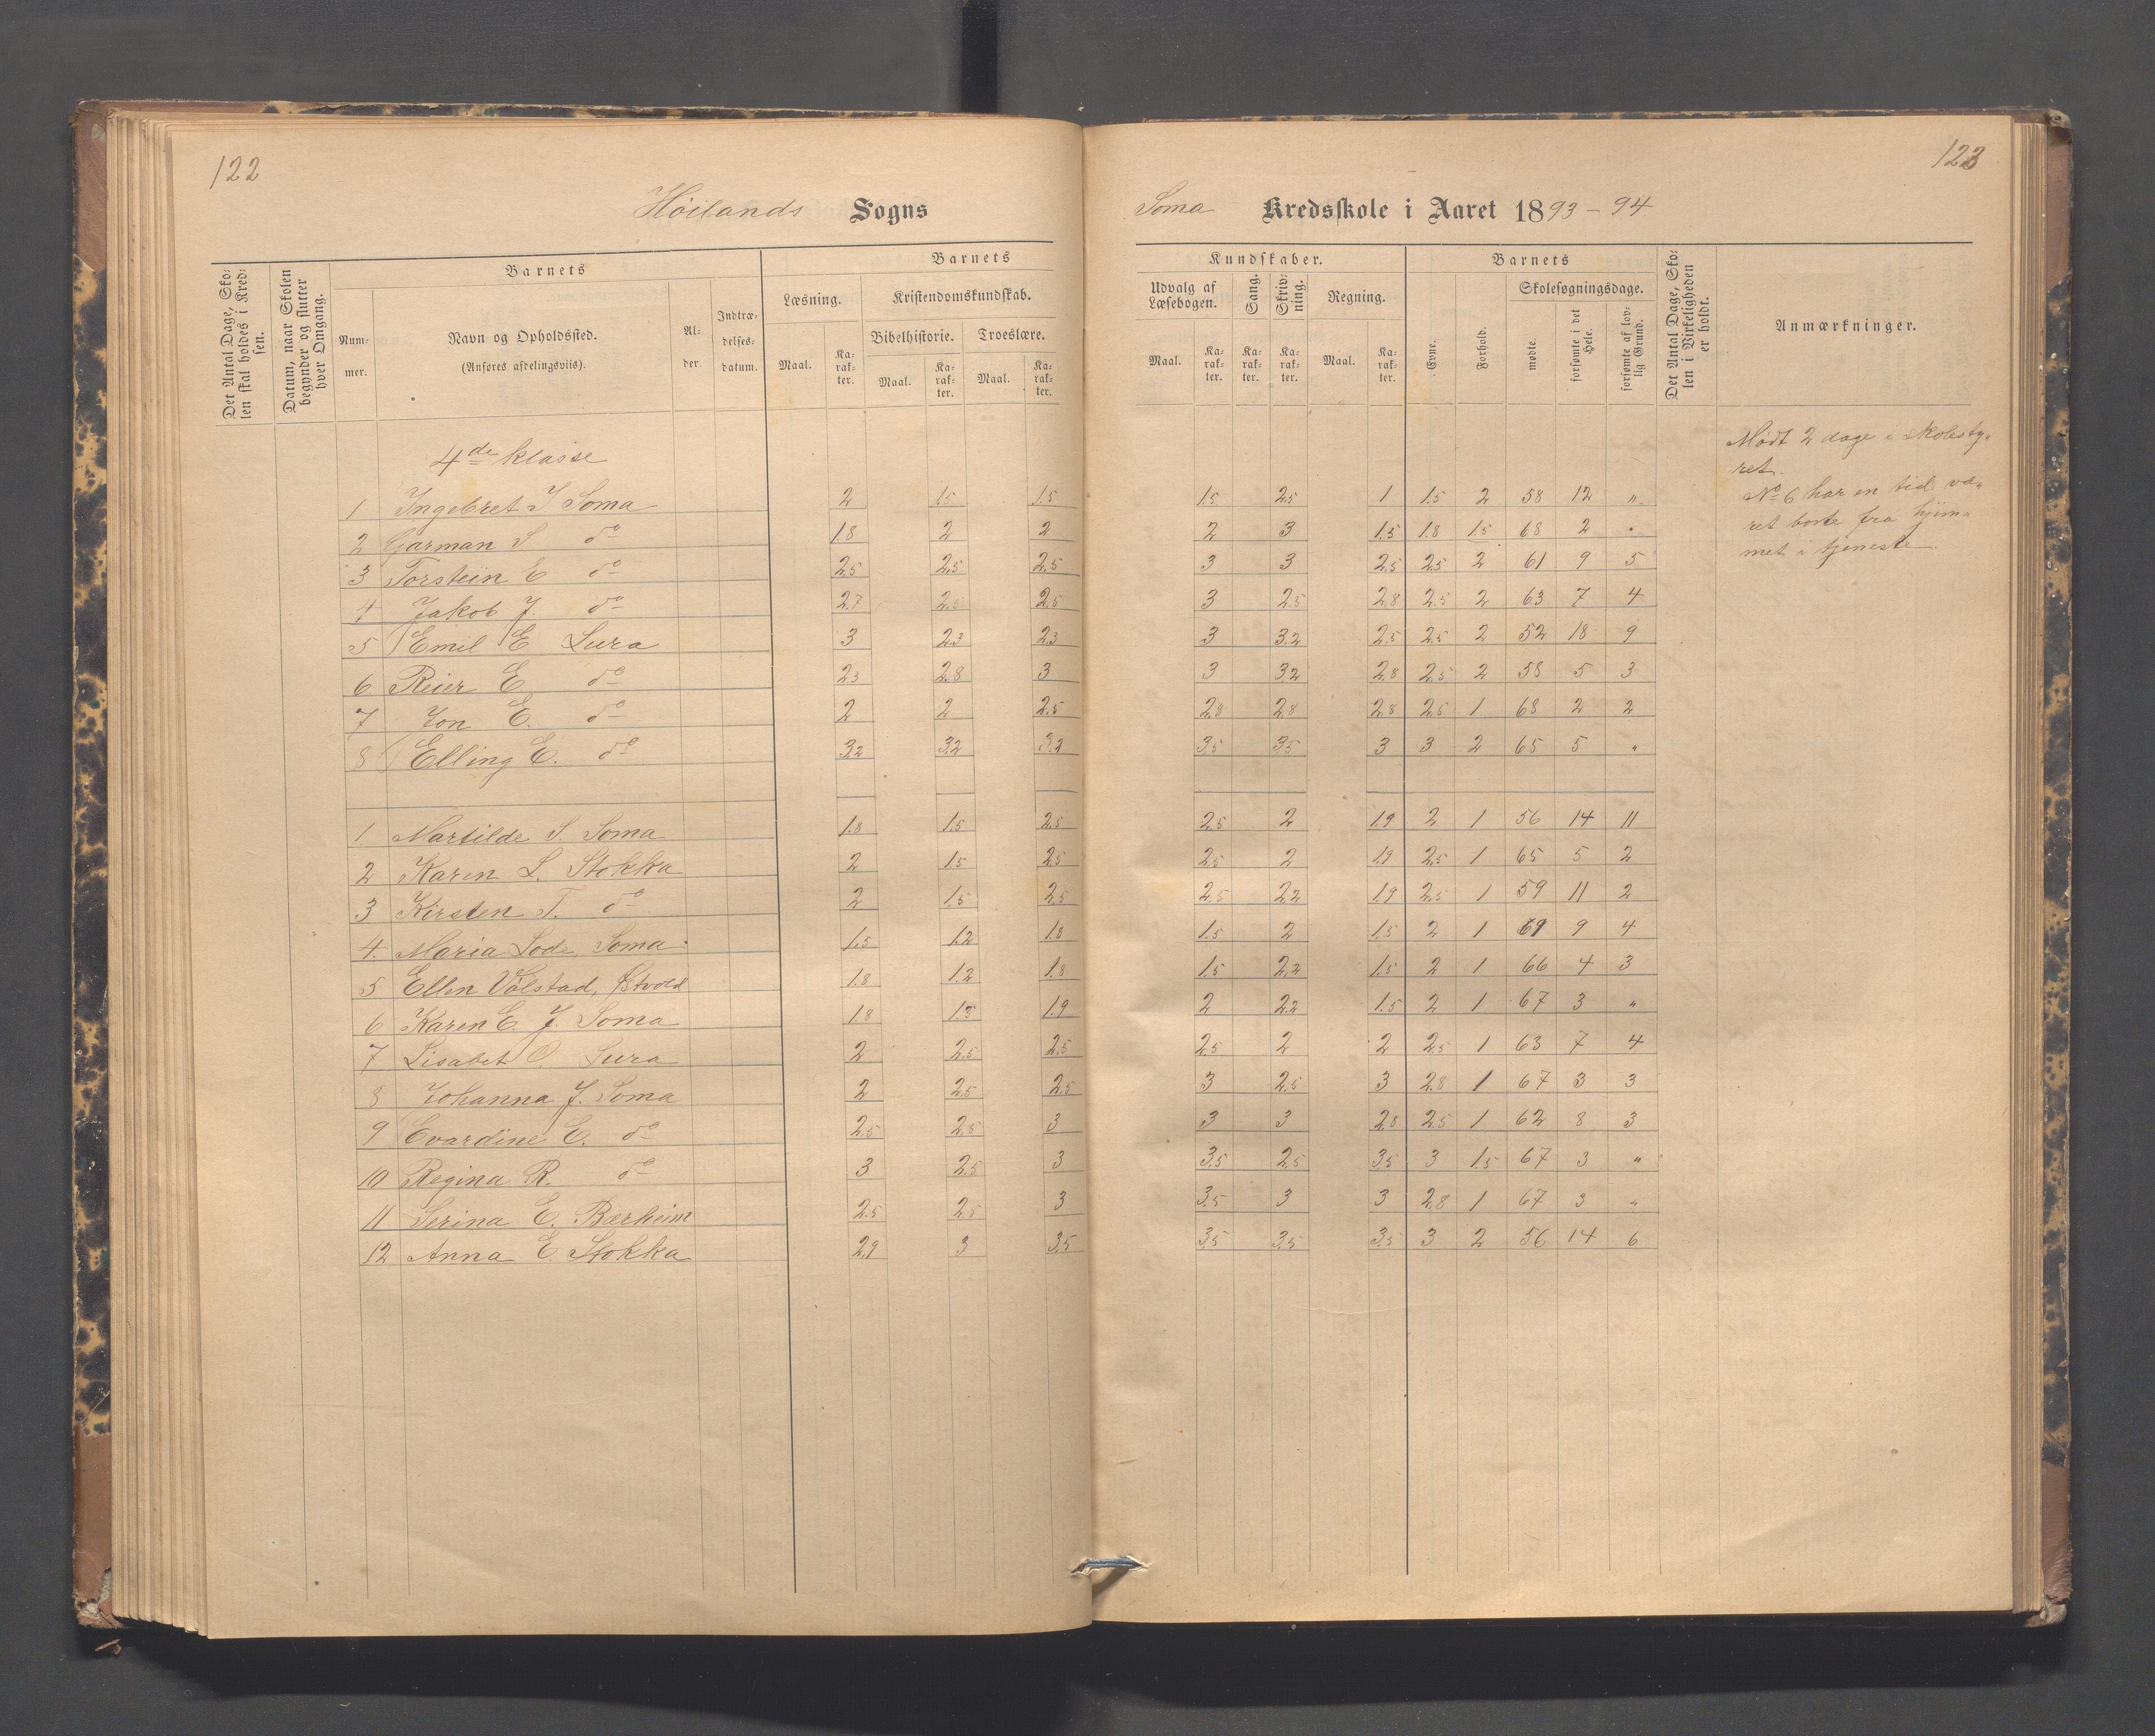 122
Höilands Sogns
Det Antal Dage, Sko-
len skal holdes i Kred-
sen.
Datum, naar Skolen
begynder og slutter
hver Omgang.
Barnets
Num-
mer.
Navn og Opholdssted.
(Anføres afdelingsviis).
Al-
der.
Indtræ-
delses-
datum.
Barnets
Læsning.
Kristendomskundskab.
Bibelhistorie. Troeslære.
Maal. Ka-rak-ter. Maal. Ka-rak-ter. Maal. Ka-rak-ter.
4de klasse
1 Ingebret J Soma 2 1.5 1.5
2 Garman S do 1.8 2 2
3 Torstein E do 2.5 2.5 2.5
4 Jakob J. do 2.7 2.5 2.5
5 Emil E Lura 3 2.3 2.3
6 Reier E do 2.3 2.8 3
7 Jon E. do 2 2 2.5
8 Elling E. do 3.2 3.2 3.2
1 Martilde S. Soma 1.8 1.5 2.5
2 Karen L. Stokka 2 1.5 2.5
3 Kirsten T. do 2 1.5 2.5
4. Maria Lode, Soma 1.5 1.2 1.8
5 Ellen Välstad, 1.8 1.2 1.8
6 Karen E. J. Soma 1.8 1.3 1.9
7 Lisabet O. Lura 2 2.5 2.5
8 Johanna J. Soma 2 2.5 2.5
9 Evardine E. do 2.5 2.8 3
10 Regina R. do 3 2.5 3
11 Serina E. Bærheim 2.5 2.5 3
12 Anna E. Stokka 2.9 3 3.5
123
Soma Kredsskole i Aaret 1893-94
Kundskaber.
Udvalg af
Læsebogen.
Sang.
Skriv-
ning.
Regning.
Maal. Ka-rak-ter. Ka-rak-ter. Ka-rak-ter. Maal. Ka-rak-ter.
Barnets
Evne.
Forhold.
Skolesøgningsdage.
mødte.
forsømte i det
Hele.
forsømte af lov-
lig Grund.
Det Antal Dage, Sko-
len i Virkeligheden
er holdt.
Anmærkninger.
1.5 2.5 1 1.5 2 58 12 "
2 3 1.5 1.8 1.5 68 2 "
3 3 2.5 2.5 2 61 9 5
3 2.5 2.8 2.5 2 63 7 4
3 3.2 2.5 2.5 2 52 18 9
3 3.2 2.8 2.5 2 58 5 3
2.8 2.8 2.8 2.5 1 68 2 2
3.5 3.5 3 3 2 65 5 "
2.5 2 1.9 2 1 56 14 11
2.5 2 1.9 2.5 1 65 5 2
2.5 2.2 1.9 2.5 1 59 11 2
1.5 2 1.5 2 1 61 9 4
1.5 2.2 1.5 2 1 66 4 3
2 2.2 1.5 2 1 67 3 "
2.5 2 2 2.5 1 63 7 4
3 2.5 3 2.8 1 67 3 3
3 3 2.8 2.5 1 62 8 3
3.5 2.5 3.5 3 1.5 67 3 "
3.5 3 3 2.8 1 67 3 "
3.5 3.5 3.5 3 2 56 14 6
Mødt 2 dage i skolesty-
ret.
No 6 har en tid væ-
ret borte fra hjem-
met i tjeneste.